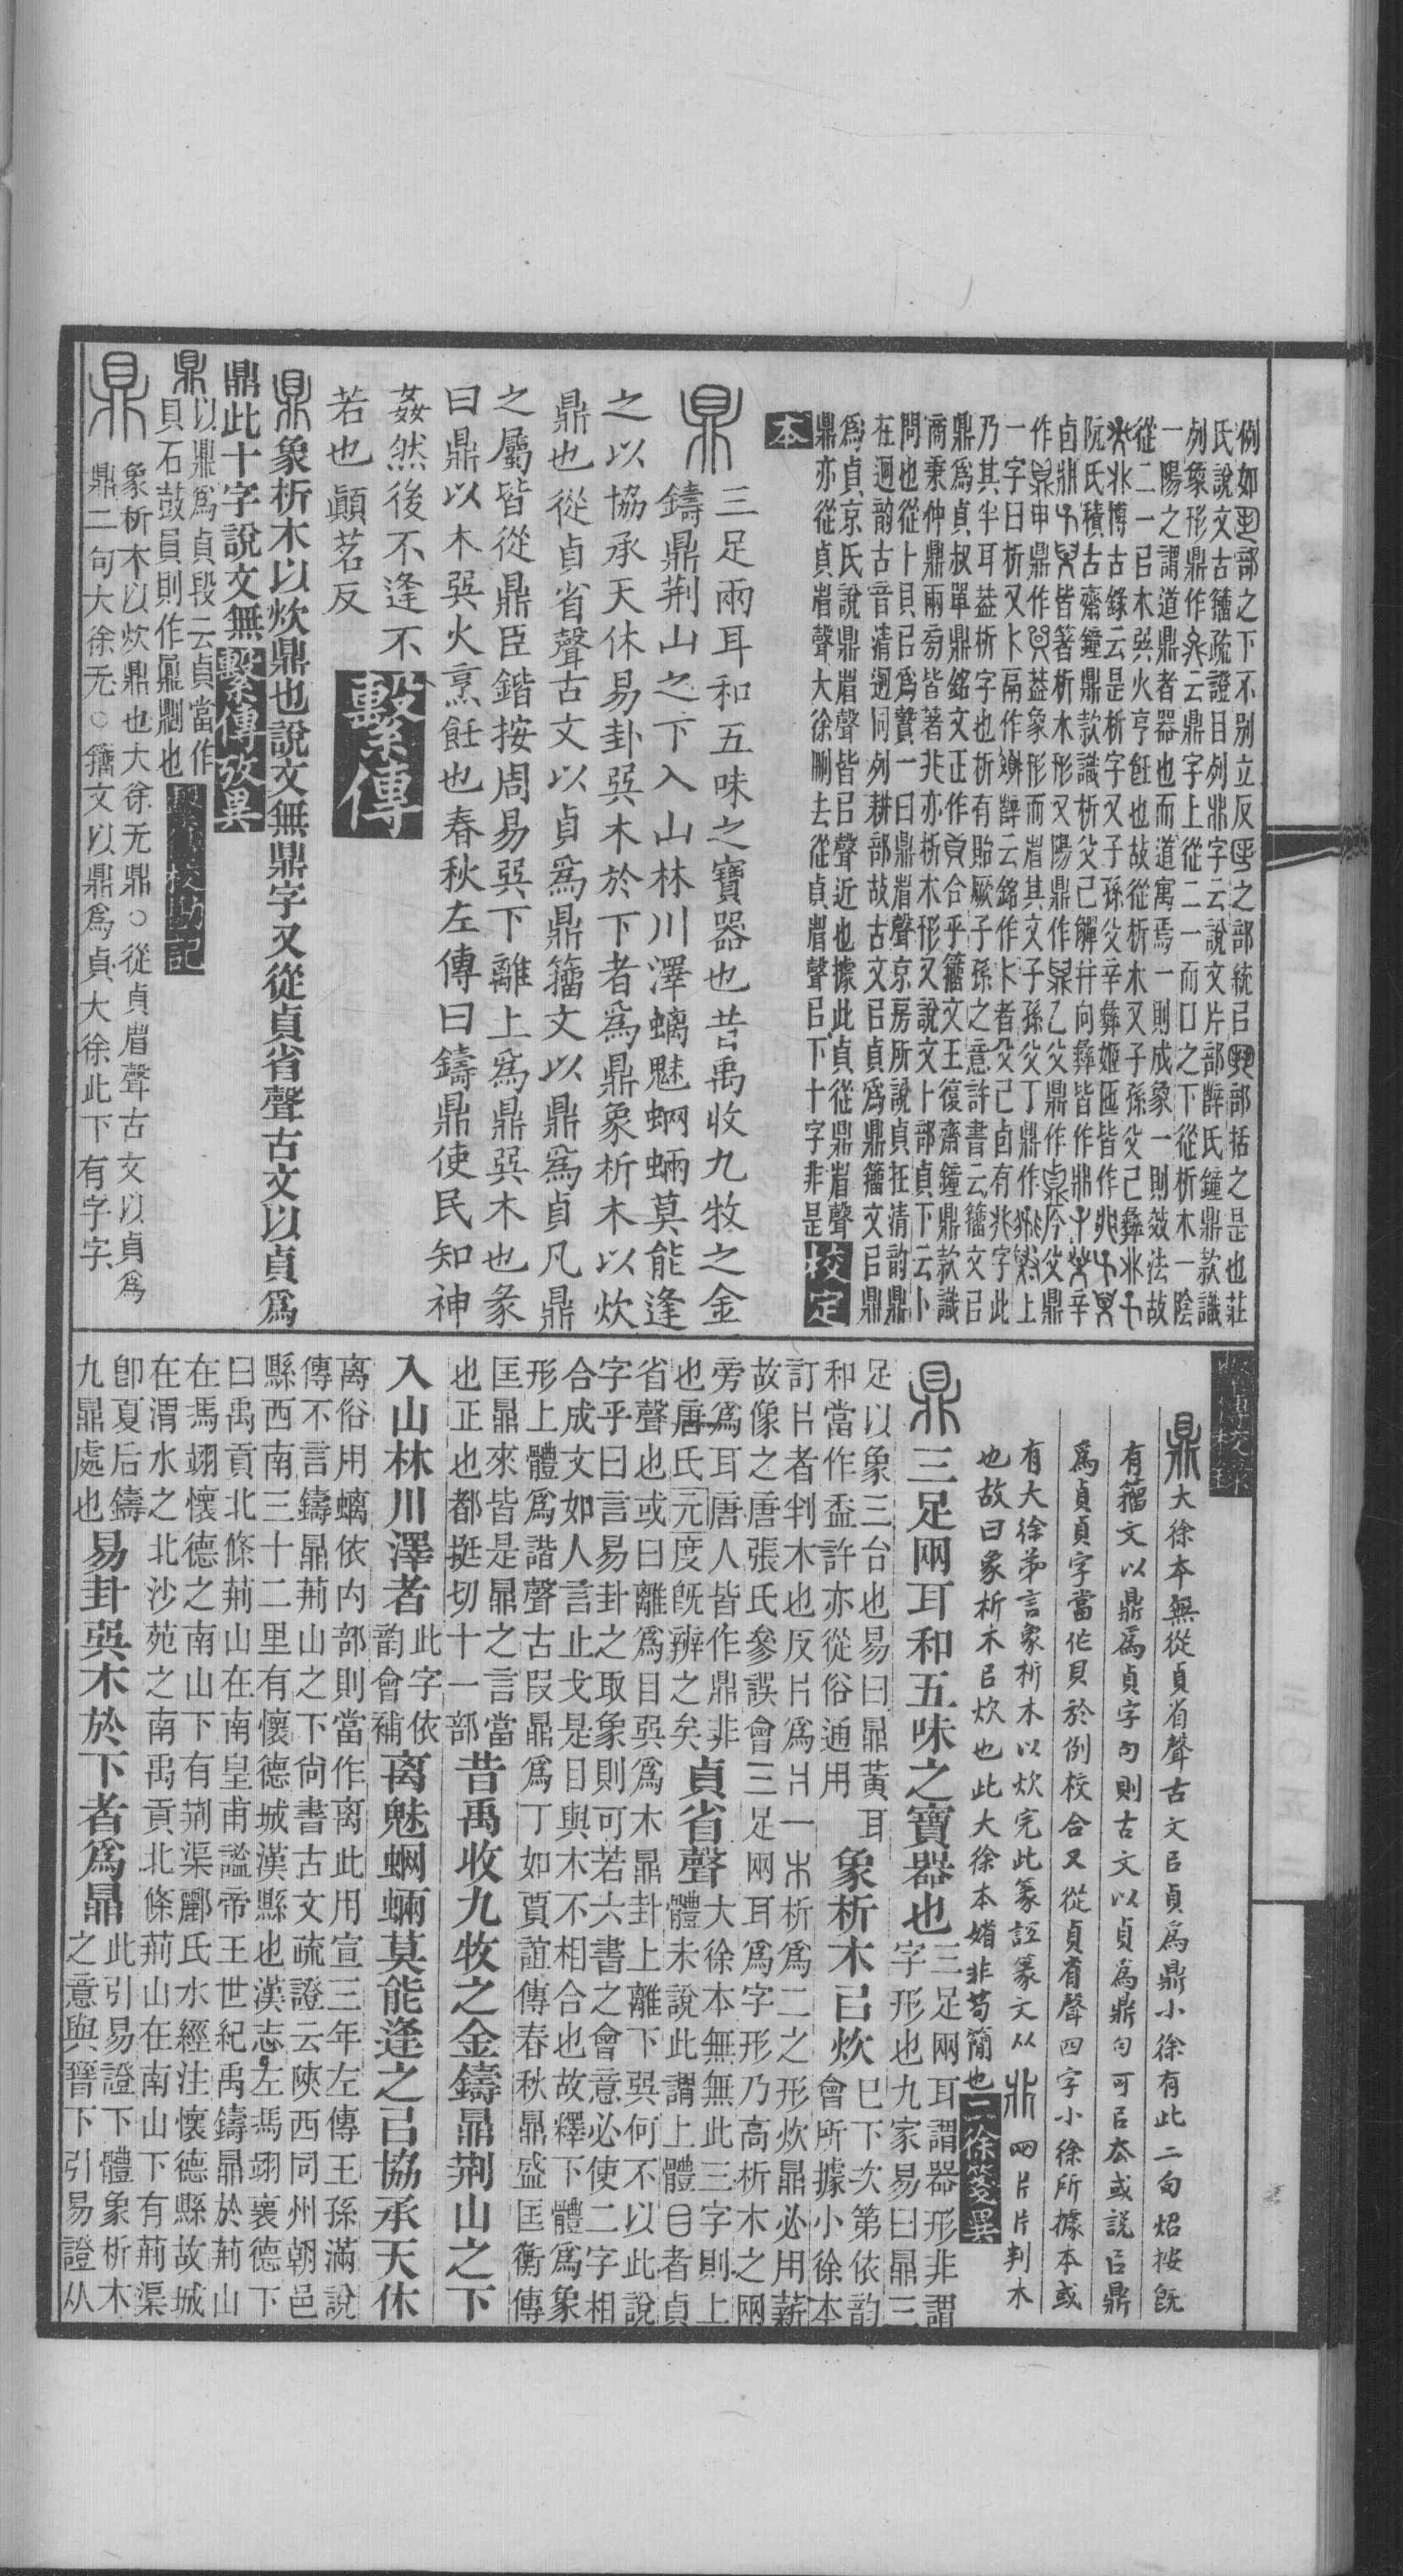 例如部之下不別立反之部統㠯部括之是也莊
氏說文古籀疏證目列鼎字云說文片部辥氏鐘鼎款識
列象形鼎作云鼎字上從二一而口之下從析木一陰
一陽之謂道鼎者器也而道寓焉一則成象一則效法故
從二一㠯木巽火亨飪也故從析木又子孫父己彝
博古錄云是析字又子孫父辛彝姬匜皆作
阮氏積古齋鐘鼎款識析父己解幷向彝皆作辛
卣鼎皆著析木形又陽鼎作乙父鼎作今父鼎
作申鼎作葢象形而眉其文子孫父丁鼎作上
一字曰析又卜隔作辥云銘作者父己卣有字此
乃其半耳葢析字也析有貽厥子孫之意許書云籀文㠯
鼎爲貞叔單鼎銘文正作合乎籀文王復齋鐘鼎款識
商秉仲鼎兩旁皆著亦析木形又說文卜部貞下云卜
問也從卜貝㠯爲贄一曰鼎省聲京房所說貞在清韵鼎
在迥韵古音清迥同列耕部故古文㠯貞爲鼎籀文㠯鼎
爲貞京氏說鼎省聲皆㠯聲近也據此貞從鼎省聲
鼎亦從貞省聲大徐刪去從貞省聲㠯下十字非是校定
本
鼎三足兩耳和五味之寶器也昔禹收九牧之金
鑄鼎荆山之下入山林川澤螭魅蝄蜽莫能逢
之以協承天休易卦巽木於下者爲鼎象析木以炊
鼎也從貞省聲古文以貞爲鼎籀文以鼎爲貞凡鼎
之屬皆從鼎臣鍇按周易巽下離上爲鼎巽木也彖
曰鼎以木巽火烹飪也春秋左傳曰鑄鼎使民知神
姦然後不逢不
若也顚茗反
繫傳
鼎象析木以炊鼎也說文無鼎字又從貞省聲古文以貞爲
鼎此十字說文無繫傳攷異
鼎以鼎爲貞段云貞當作
貝石鼓員則作鼎劓也
繫傳校勘記
鼎象析木以炊鼎也大徐无鼎○從貞省聲古文以貞爲
鼎二句大徐无○籀文以鼎爲貞大徐此下有字字
繫傳校錄
鼎大徐本無從貞省聲古文㠯貞爲鼎小徐有此二句炤按旣
有籀文以鼎爲貞字句則古文以貞爲鼎句可㠯夲或説㠯鼎
爲貞貞字當作貝於例校合又從貞省聲四字小徐所據本或
有大徐弟言象析木以炊完此篆註篆文从鼎四片片判木
也故曰象析木㠯炊也此大徐本媘非苟簡也二徐箋異
鼎三足兩耳和五味之寶器也三足兩耳謂器形非謂
字形也九家易曰鼎三
足以象三台也易曰鼎黃耳
和當作盉許亦從俗通用
象析木㠯炊巳下次第依韵
會所據小徐本
訂片者判木也反片爲爿一析爲二之形炊鼎必用薪
故像之唐張氏參誤會三足兩耳爲字形乃高析木之兩
旁爲耳唐人皆作鼎非
也唐氏元度旣辨之矣
貞省聲大徐本無無此三字則上
體未說此謂上體目者貞
省聲也或曰離爲目巽爲木鼎卦上離下巽何不以此說
字乎曰言易卦之取象則可若六書之會意必使二字相
合成文如人言止戈是目與木不相合也故釋下體爲象
形上體爲諧聲古叚鼎爲丁如賈誼傳春秋鼎盛匡衡傳
匡鼎來皆是鼎之言當
也正也都挺切十一部
昔禹收九牧之金鑄鼎荆山之下
入山林川澤者此字依
韵會補离魅蝄蜽莫能逢之㠯協承天休
离俗用螭依内部則當作离此用宣三年左傳王孫滿說
傳不言鑄鼎荆山之下尙書古文疏證云陝西同州朝邑
縣西南三十二里有懷德城漢縣也漢志左馮翊襄德下
曰禹貢北條荆山在南皇甫謐帝王世紀禹鑄鼎於荆山
在馮翊懷德之南山下有荆渠酈氏水經注懷德縣故城
在渭水之北沙苑之南禹貢北條荊山在南山下有荊渠
卽夏后鑄
九鼎處也
易卦巽木於下者爲鼎此引易證下體象析木
之意與晉下引易證从